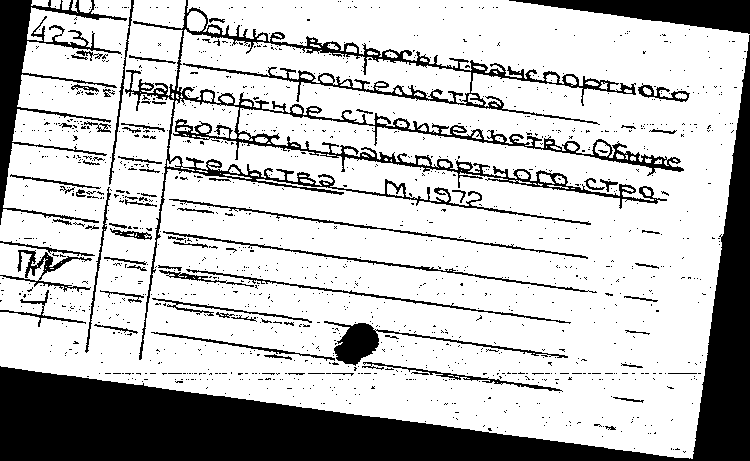 4231
Общие вопросы транспортного
строительства
Транспортное строительство. Общие
вопросы транспортного стро-
ительства. М., 1972